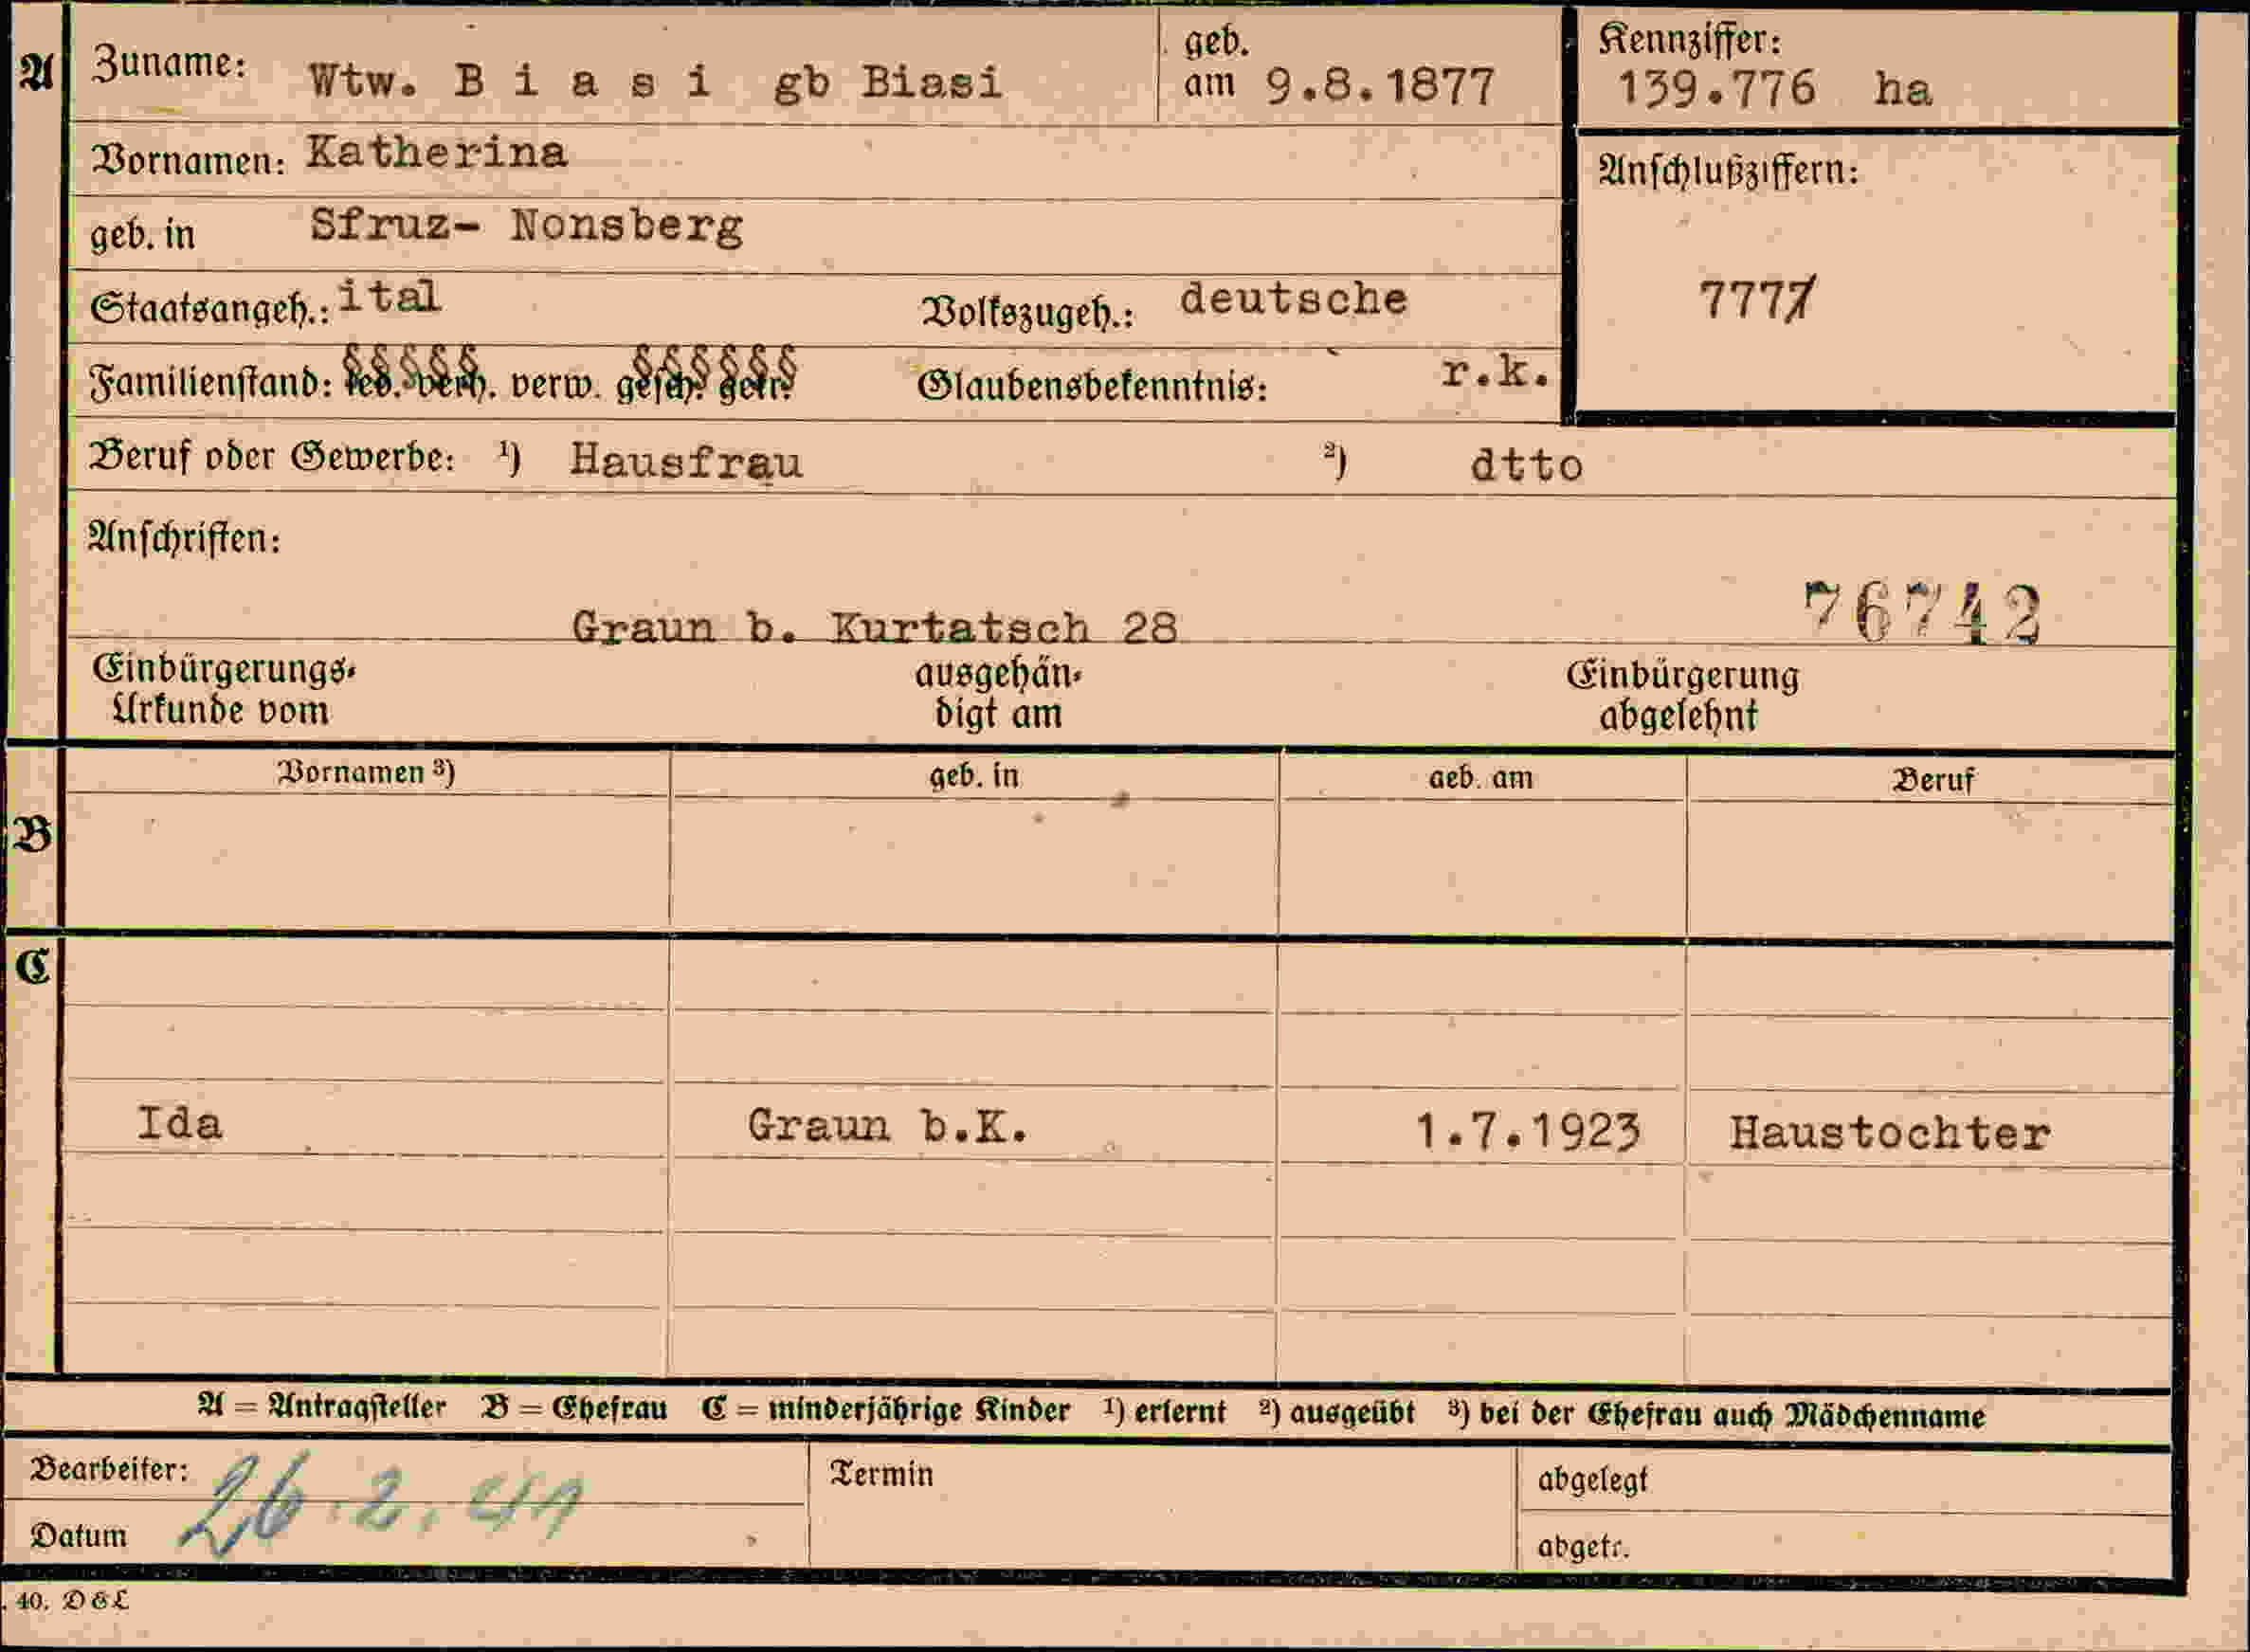 A Zuname: Wtw. B i a s i gb Biasi geb. am 9.8.1877
Kennziffer: 139.776 ha
Vornamen: Katherina
Anschlußziffern:
geb. in Sfruz- Nonsberg
7777
Staatsangeh.: ital Volkszugeh.: deutsche
Familienstand: led. verh. verw. gesch. getr. Glaubensbekenntnis: r.k.
Beruf oder Gewerbe: ¹) Hausfrau ²) dtto
Anschriften:
Graun b. Kurtatsch 28
76742
Einbürgerungs-Urkunde vom ausgehän-digt am Einbürgerung abgelehnt
Vornamen ³) geb. in geb. am Beruf
B
C
Ida Graun b.K. 1.7.1923 Haustochter
A = Antragsteller B = Ehefrau C = minderjährige Kinder ¹) erlernt ²) ausgeübt ³) bei der Ehefrau auch Mädchenname
Bearbeiter: Termin abgelegt
26.2.41
Datum abgetr.
40. D & L